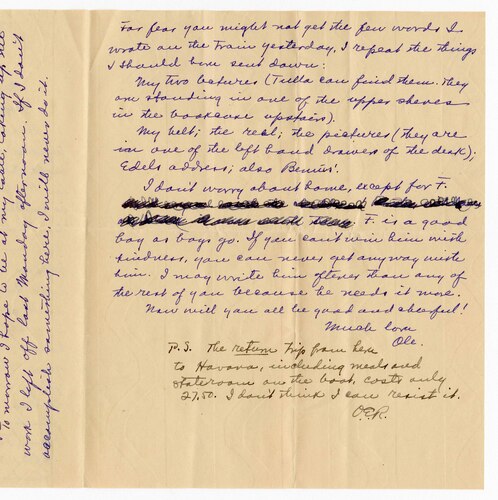 For fear you might not get the few words I
wrote on the train yesterday, I repeat the things
I should have sent down:
My two lectures (Tulla can find them. They
are standing in one of the upper shelves
in the bookcase upstairs).
My belt; the reel; the pictures (they are
in one of the left hand drawers of the desk);
Edel's address; also Benius'.
I don't worry about home, except for F.
F. is a good
boy as boys go. If you can't win him with
kindness, you can never get anyway with
him. I may write him oftener than any of
the rest of you because he needs it more.
Now will you all be good and cheerful!
Much love
Ole.
P.S. The return trip from here
to Havana, including meals and
stateroom on the boat, costs only
27.50. I don't think I can resist it.
O.E.R.
To morrow I hope to be at my table, taking up the
work I left off last Monday afternoon. If I don't
accomplish something here, I will never do it.